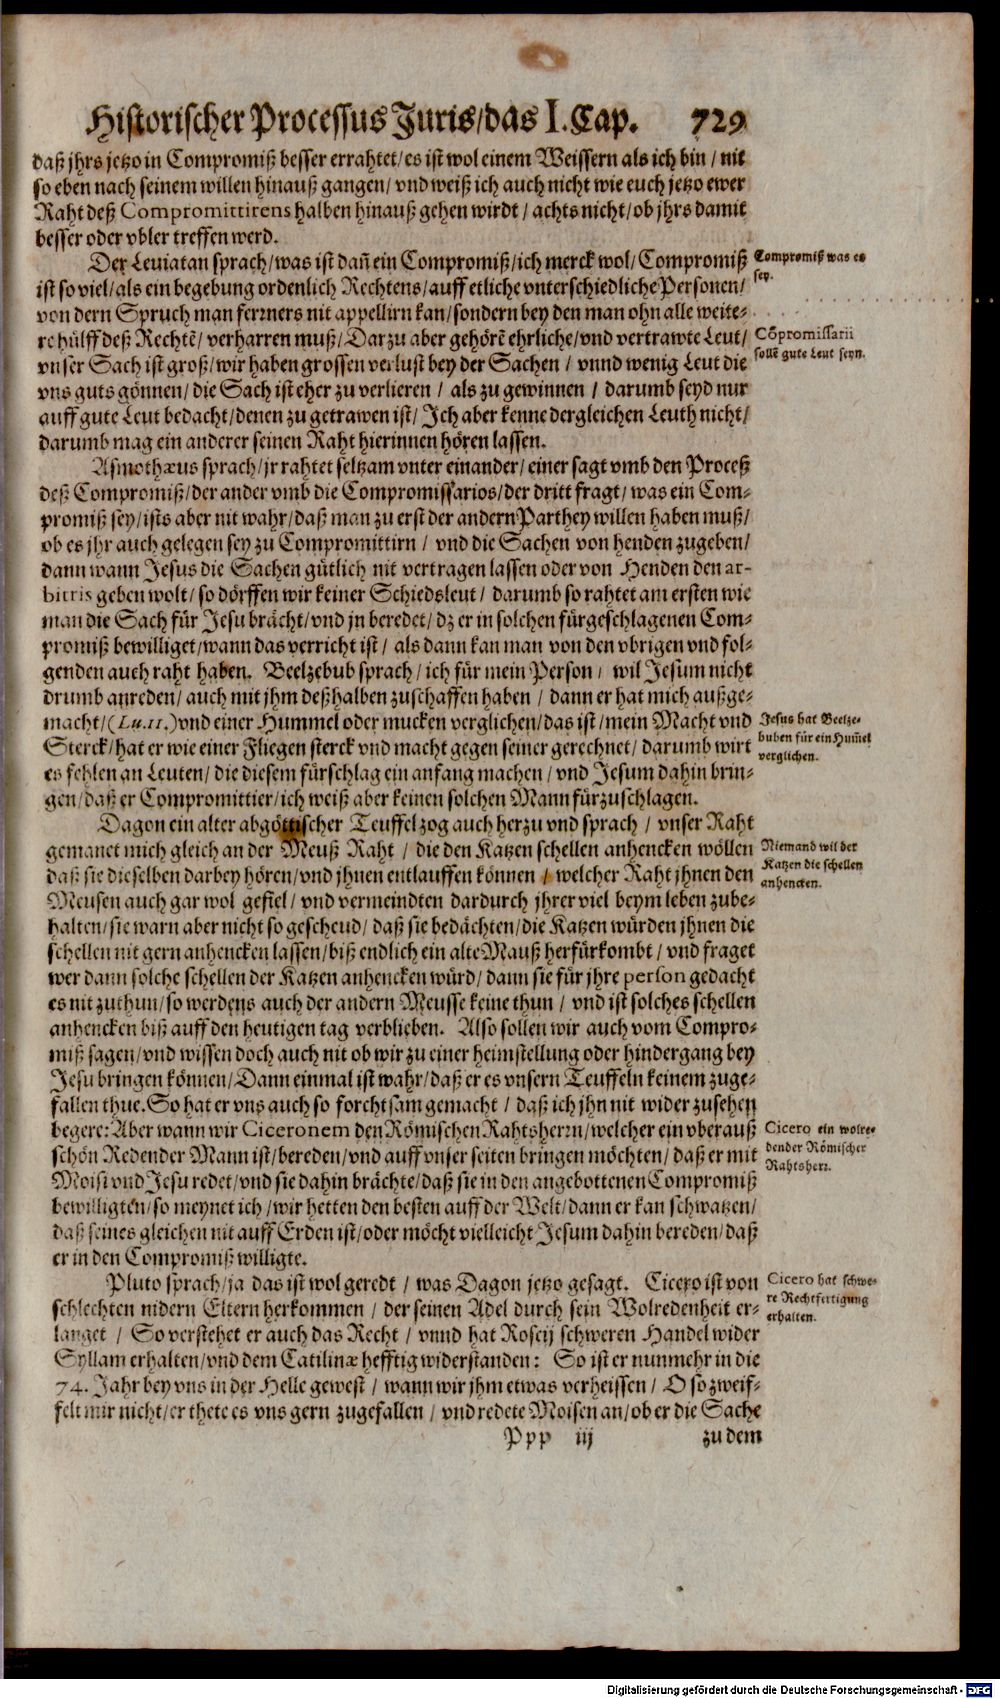 Historischer Processus Juris/das I. Cap. 729
daß jhrs jetzo in Compromiß besser errahtet/es ist wol einem Weissern als ich bin / nit
so eben nach seinem willen hinauß gangen/ vnd weiß ich auch nicht wie euch jetzo ewer
Raht deß Compromittirens halben hinauß gehen wirdt / achts nicht/ ob jhrs damit
besser oder vbler treffen werd.
Der Leviatan sprach/was ist dañ ein Compromiß/ich merck wol/Compromiß
ist so viel/als ein begebung ordenlich Rechtens/auff etliche vnterschiedliche Personen/
von dern Spruch man ferrners nit appellirn kan/sondern bey den man ohn alle weite-
re hülff deß Rechtẽ/ verharren muß/ Darzu aber gehörẽ ehrliche/vnd vertrawte Leut/
vnser Sach ist groß/wir haben grossen verlust bey der Sachen / vnnd wenig Leut die
vns guts gönnen/ die Sach ist eher zu verlieren / als zu gewinnen / darumb seyd nur
auff gute Leut bedacht/denen zu getrawen ist/ Jch aber kenne dergleichen Leuth nicht/
darumb mag ein anderer seinen Raht hierinnen hören lassen.
Asmothæus sprach/jr rahtet seltzam vnter einander/ einer sagt vmb den Proceß
deß Compromiß/der ander vmb die Compromissarios/der dritt fragt/ was ein Com-
promiß sey/ists aber nit wahr/daß man zu erst der andern Parthey willen haben muß/
ob es jhr auch gelegen sey zu Compromittirn / vnd die Sachen von henden zugeben/
dann wann Jesus die Sachen gütlich nit vertragen lassen oder von Henden den ar-
bitris geben wolt/ so dörffen wir keiner Schiedsleut / darumb so rahtet am ersten wie
man die Sach für Jesu brächt/vnd jn beredet/ dz er in solchen fürgeschlagenen Com-
promiß bewilliget/wann das verricht ist / als dann kan man von den vbrigen vnd fol-
genden auch raht haben. Beelzebub sprach/ ich für mein Person / wil Jesum nicht
drumb anreden/ auch mit jhm deßhalben zuschaffen haben / dann er hat mich außge-
macht/(Lu.11.) vnd einer Hummel oder mucken verglichen/das ist/mein Macht vnd
Sterck/hat er wie einer Fliegen sterck vnd macht gegen seiner gerechnet/ darumb wirt
es fehlen an Leuten/ die diesem fürschlag ein anfang machen / vnd Jesum dahin brin-
gen/daß er Compromittier/ich weiß aber keinen solchen Mann fürzuschlagen.
Dagon ein alter abgöttischer Teuffel zog auch herzu vnd sprach / vnser Raht
gemanet mich gleich an der Meuß Raht / die den Katzen schellen anhencken wöllen
daß sie dieselben darbey hören/vnd jhnen entlauffen können / welcher Raht jhnen den
Meusen auch gar wol gefiel/ vnd vermeindten dardurch jhrer viel beym leben zube-
halten/sie warn aber nicht so gescheud/ daß sie bedächten/die Katzen würden jhnen die
schellen nit gern anhencken lassen/biß endlich ein alte Mauß herfürkombt / vnd fraget
wer dann solche schellen der Katzen anhencken würd/ dann sie für jhre person gedacht
es nit zuthun/ so werdens auch der andern Meusse keine thun / vnd ist solches schellen
anhencken biß auff den heutigen tag verblieben. Also sollen wir auch vom Compro-
miß sagen/vnd wissen doch auch nit ob wir zu einer heimstellung oder hindergang bey
Jesu bringen können/Dann einmal ist wahr/daß er es vnsern Teuffeln keinem zuge-
fallen thue. So hat er vns auch so forchtsam gemacht / daß ich jhn nit wider zusehen
begere: Aber wann wir Ciceronem den Römischen Rahtsherrn/welcher ein vberauß
schön Redender Mann ist/bereden/vnd auff vnser seiten bringen möchten/ daß er mit
Moisi vnd Jesu redet/vnd sie dahin brächte/daß sie in den angebottenen Compromiß
bewilligten/so meynet ich /wir hetten den besten auff der Welt/dann er kan schwatzen/
daß seines gleichen nit auff Erden ist/oder möcht vielleicht Jesum dahin bereden/daß
er in den Compromiß willigte.
Pluto sprach/ja das ist wol geredt / was Dagon jetzo gesagt. Cicero ist von
schlechten nidern Eltern herkommen / der seinen Adel durch sein Wolredenheit er-
langet / So verstehet er auch das Recht / vnnd hat Roscij schweren Handel wider
Syllam erhalten/vnd dem Catilinæ hefftig widerstanden: So ist er nunmehr in die
74. Jahr bey vns in der Helle gewest / wann wir jhm etwas verheissen / O so zweif-
felt mir nicht/er thete es vns gern zugefallen / vnd redete Moisen an/ob er die Sache
Ppp iij zu dem
Compromiß was es
sey.
Cõpromissarii
sollẽ gute Leut seyn.
Jesus hat Beelze-
buben für ein Hum̃el
verglichen.
Niemand wil der
Katzen die schellen
anhencken.
Cicero ein wolre-
dender Römischer
Rahtsherr.
Cicero hat schwe-
re Rechtfertigung
erhalten.
Digitalisierung gefördert durch die Deutsche Forschungsgemeinschaft - DFG